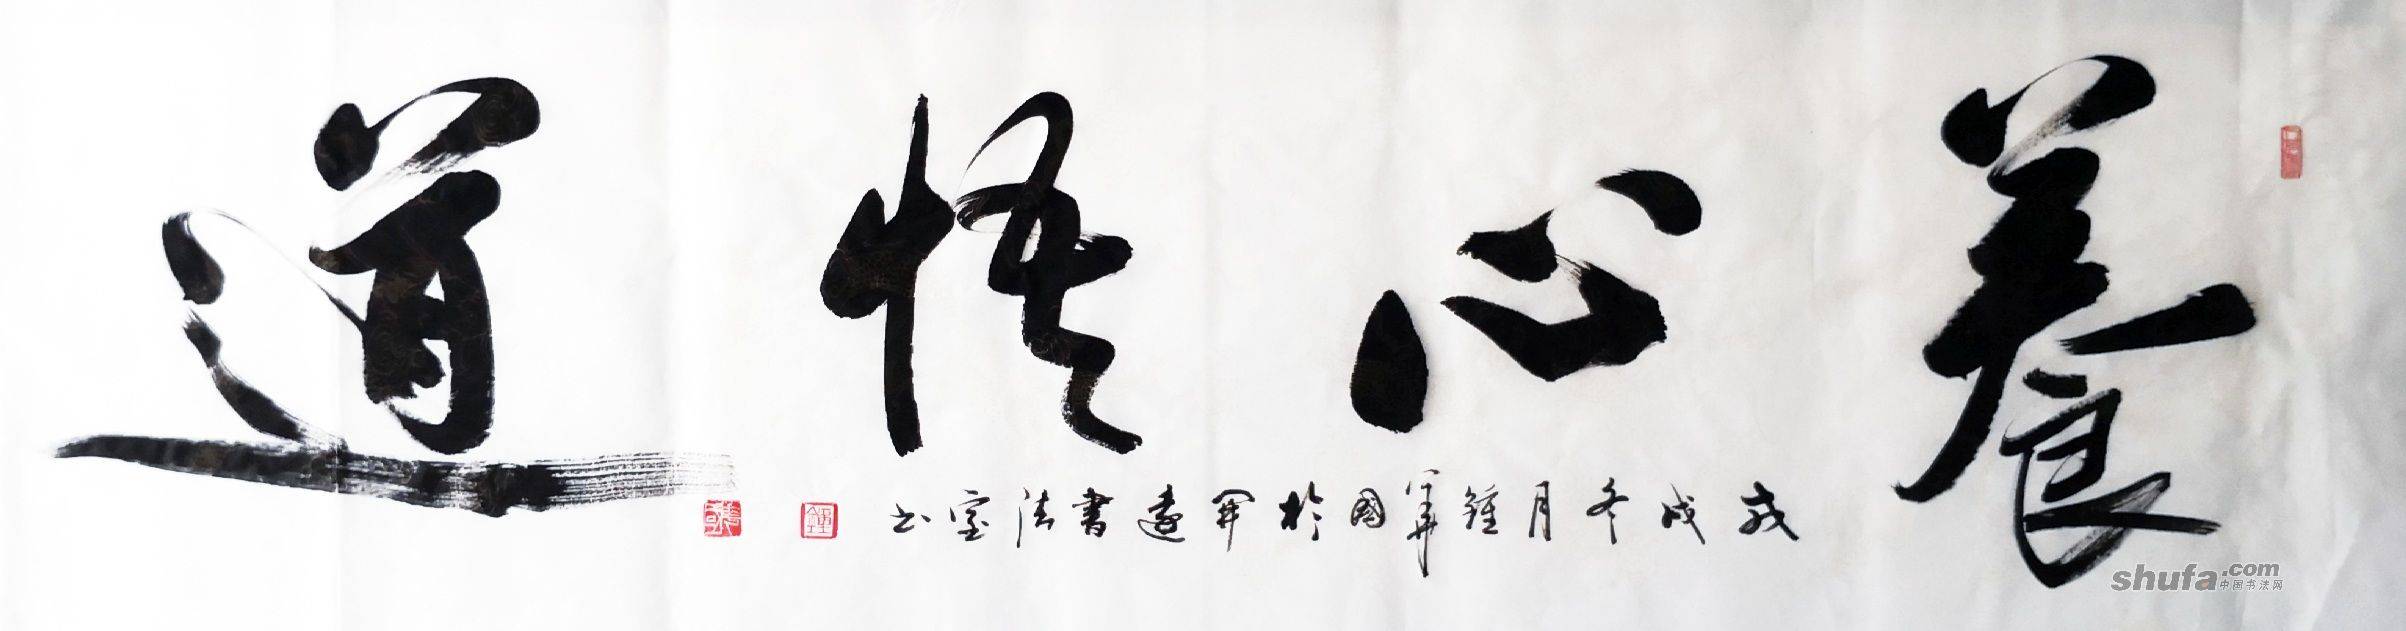 養心悟道
戊戌冬月鍾華國於遠書法室书
shufa.com
中国书法网